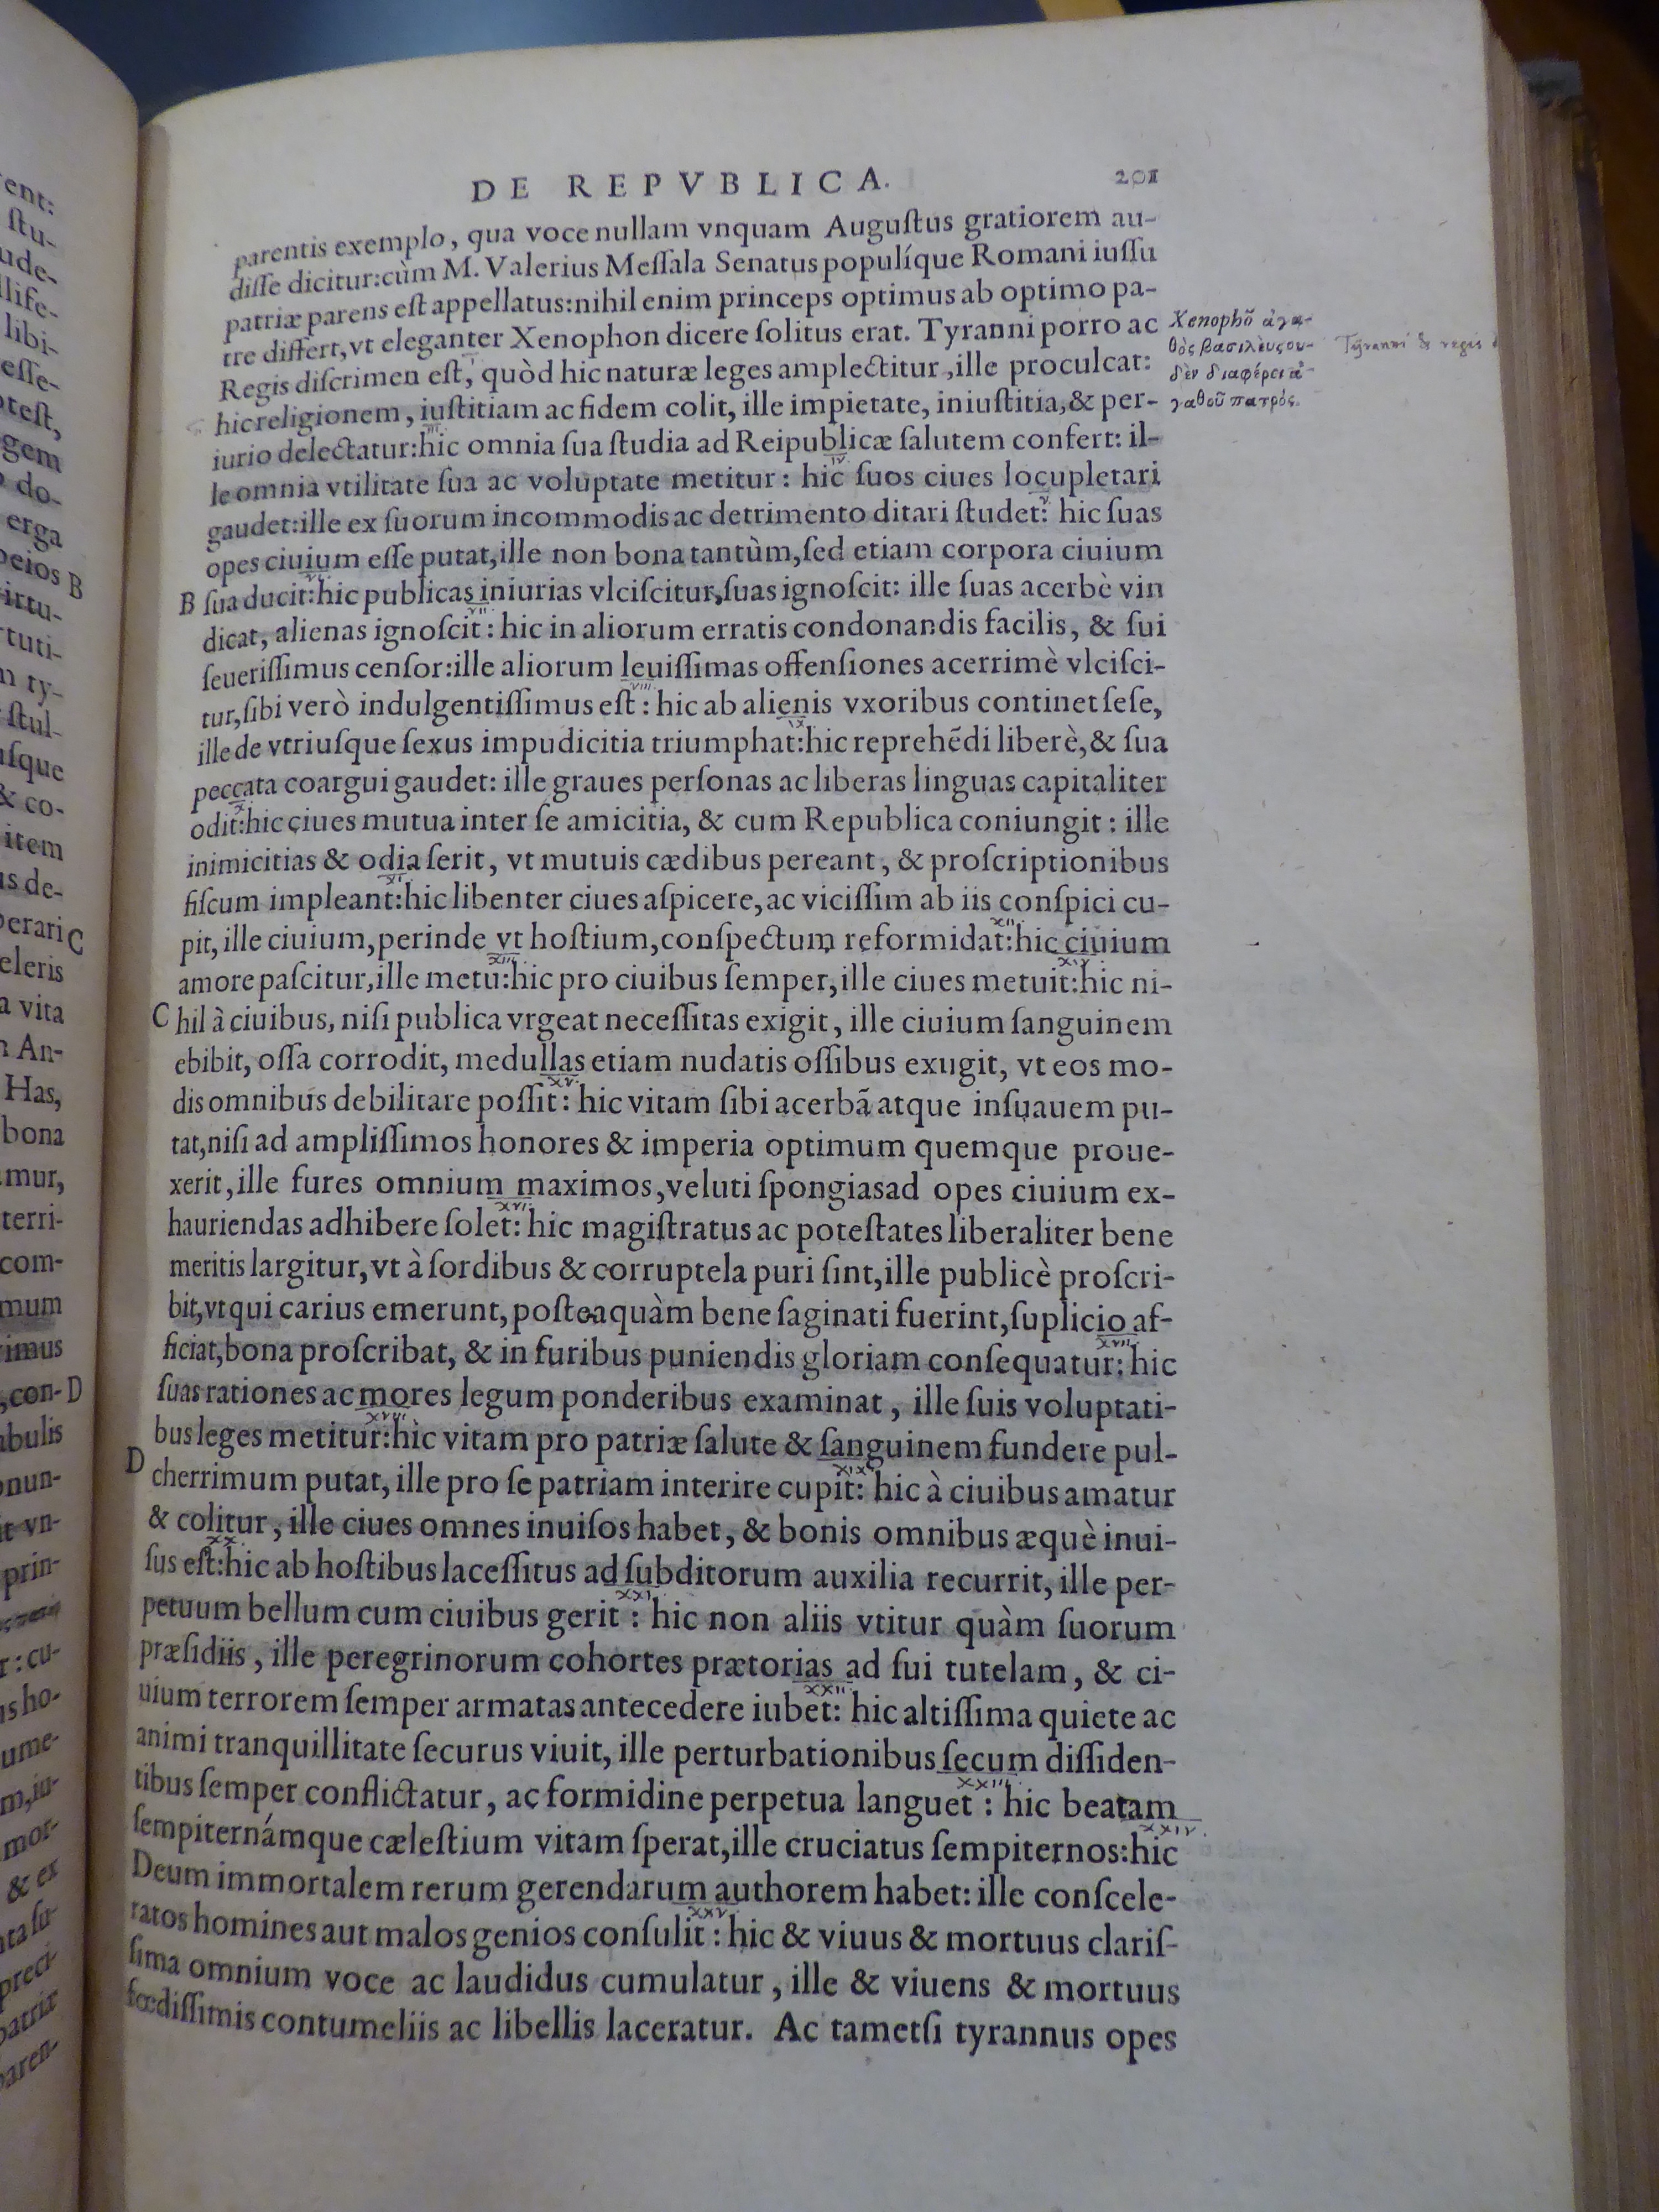 ent:
ſtu-
ude-
llife-
libi-
eſſe-
oteſt,
gem
o do-
erga
peios B
irtu-
rtuti-
m ty-
ſtul-
uſque
& co-
item
us de-
perari C
eleris
a vita
n An-
Has,
bona
mur,
terri-
com-
mum
imus
,con- D
abulis
onun-
it vn-
prin-
r: cu-
is ho-
ume-
m,iu-
mor-
& ex
ta ſu-
preci-
patriæ
paren-
DE REPVBLICA. 201
parentis exemplo, qua voce nullam vnquam Auguſtus gratiorem au-
diſſe dicitur:cùm M. Valerius Meſſala Senatus populíque Romani iuſſu
patriæ parens eſt appellatus:nihil enim princeps optimus ab optimo pa-
tre differt,vt eleganter Xenophon dicere ſolitus erat. Tyranni porro ac
Regis diſcrimen eſt, quòd hic naturæ leges amplectitur,ille proculcat:
hic religionem, iuſtitiam ac fidem colit, ille impietate, iniuſtitia,& per-
iii
iurio delectatur:hic omnia ſua ſtudia ad Reipublicæ ſalutem confert: il-
iv
le omnia vtilitate ſua ac voluptate metitur: hic ſuos ciues locupletari
v
gaudet:ille ex ſuorum incommodis ac detrimento ditari ſtudet: hic ſuas
opes ciuium eſſe putat,ille non bona tantùm,ſed etiam corpora ciuium
vi
B ſua ducit:hic publicas iniurias vlciſcitur,ſuas ignoſcit: ille ſuas acerbè vin
vii
dicat, alienas ignoſcit: hic in aliorum erratis condonandis facilis, & ſui
ſeueriſſimus cenſor:ille aliorum leuiſſimas offenſiones acerrimè vlciſci-
viii
tur,ſibi verò indulgentiſſimus eſt: hic ab alienis vxoribus continet ſeſe,
ix
ille de vtriuſque ſexus impudicitia triumphat:hic reprehẽdi liberè,& ſua
peccata coargui gaudet: ille graues perſonas ac liberas linguas capitaliter
x
odit:hic ciues mutua inter ſe amicitia, & cum Republica coniungit: ille
inimicitias & odia ſerit, vt mutuis cædibus pereant, & proſcriptionibus
xi
fiſcum impleant:hic libenter ciues aſpicere,ac viciſſim ab iis conſpici cu-
xii
pit, ille ciuium,perinde vt hoſtium,conſpectum reformidat:hic ciuium
xiii xiv
amore paſcitur,ille metu:hic pro ciuibus ſemper,ille ciues metuit:hic ni-
C hil à ciuibus, niſi publica vrgeat neceſſitas exigit, ille ciuium ſanguinem
ebibit, oſſa corrodit, medullas etiam nudatis oſſibus exugit, vt eos mo-
xv.
dis omnibus debilitare poſſit: hic vitam ſibi acerbã atque inſuauem pu-
tat,niſi ad ampliſſimos honores & imperia optimum quemque proue-
xerit,ille fures omnium maximos,veluti ſpongias ad opes ciuium ex-
xvi.
hauriendas adhibere ſolet: hic magiſtratus ac poteſtates liberaliter bene
meritis largitur,vt à ſordibus & corruptela puri ſint,ille publicè proſcri-
bit,vt qui carius emerunt,poſteaquàm bene ſaginati fuerint,ſuplicio af-
xvii.
ficiat,bona proſcribat, & in furibus puniendis gloriam conſequatur: hic
ſuas rationes ac mores legum ponderibus examinat, ille ſuis voluptati-
xviii
bus leges metitur:hic vitam pro patriæ ſalute & ſanguinem fundere pul-
xix
D cherrimum putat, ille pro ſe patriam interire cupit: hic à ciuibus amatur
& colitur, ille ciues omnes inuiſos habet, & bonis omnibus æquè inui-
xx
ſus eſt:hic ab hoſtibus laceſſitus ad ſubditorum auxilia recurrit, ille per-
xxi
petuum bellum cum ciuibus gerit: hic non aliis vtitur quàm ſuorum
præſidiis, ille peregrinorum cohortes prætorias ad ſui tutelam, & ci-
xxii.
uium terrorem ſemper armatas antecedere iubet: hic altiſſima quiete ac
animi tranquillitate ſecurus viuit, ille perturbationibus ſecum diſſiden-
xxiii.
tibus ſemper conflictatur, ac formidine perpetua languet: hic beatam
xxiv.
ſempiternámque cæleſtium vitam ſperat,ille cruciatus ſempiternos:hic
Deum immortalem rerum gerendarum authorem habet: ille conſcele-
xxv.
ratos homines aut malos genios conſulit: hic & viuus & mortuus clariſ-
ſima omnium voce ac laudidus cumulatur, ille & viuens & mortuus
fœdiſſimis contumeliis ac libellis laceratur. Ac tametſi tyrannus opes
Xenophõ ἀγα-
θὸς βασιλεὺς ου-
δὲν διαφέρει ἀ-
γαθοῦ πατρὸς.
Tyranni & regis